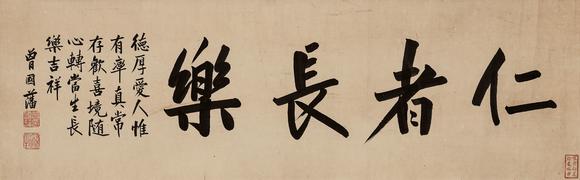 仁者長樂
德厚愛人惟
有率真常
存歡喜境隨
心轉當生長
樂吉祥
曾國藩